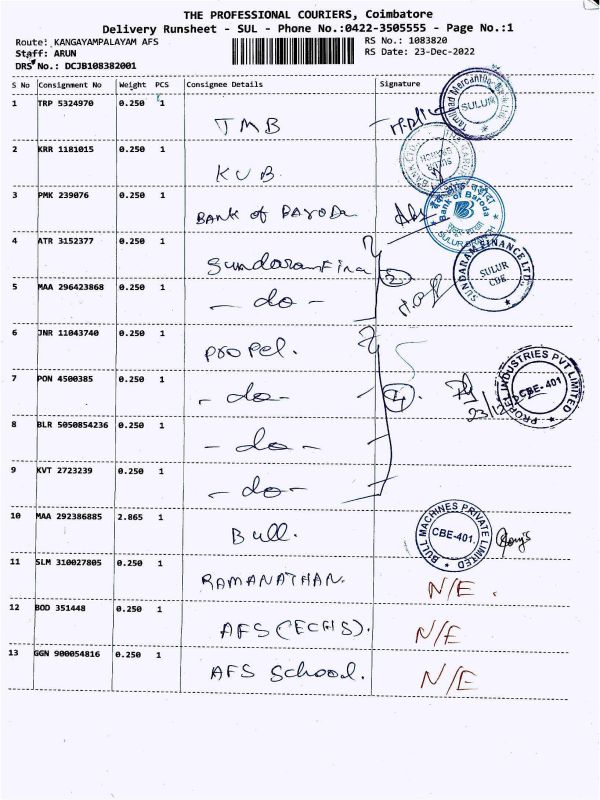 THE PROFESSIONAL COURIERS, Coimbatore
Delivery Runsheet - SUL - Phone No.:0422-3505555 - Page No.:1
Route: KANGAYAMPALAYAM AFS
RS No.: 1083820
Staff: ARUN
RS Date: 23-Dec-2022
DRS No.: DCJB108382001
S No Consignment No Weight PCS Consignee Details Signature
1 TRP 5324970 0.250 1 TMB
Tamilnad Mercantile Bank Ltd. SULUR
2 KRR 1181015 0.250 1 KVB
3 PMK 239076 0.250 1 BANK of BARODA
बैंक ऑफ़ बड़ौदा Bank of Baroda SULUR BRANCH
4 ATR 3152377 0.250 1 Sundaram Fina
SUNDARAM FINANCE LTD., SULUR CBE
5 MAA 296423868 0.250 1 - do - 2
6 JNR 11043740 0.250 1 propel.
7 PON 4500385 0.250 1 - do - 4
23/12/22
PROPEL INDUSTRIES PVT LIMITED CBE-401
8 BLR 5050854236 0.250 1 - do -
9 KVT 2723239 0.250 1 - do -
10 MAA 292386885 2.865 1 Bull.
BULL MACHINES PRIVATE LIMITED CBE-401.
11 SLM 310027805 0.250 1 RAMANATHAN. N/E.
12 BOD 351448 0.250 1 AFS (ECHS). N/E
13 GGN 900054816 0.250 1 AFS School. N/E